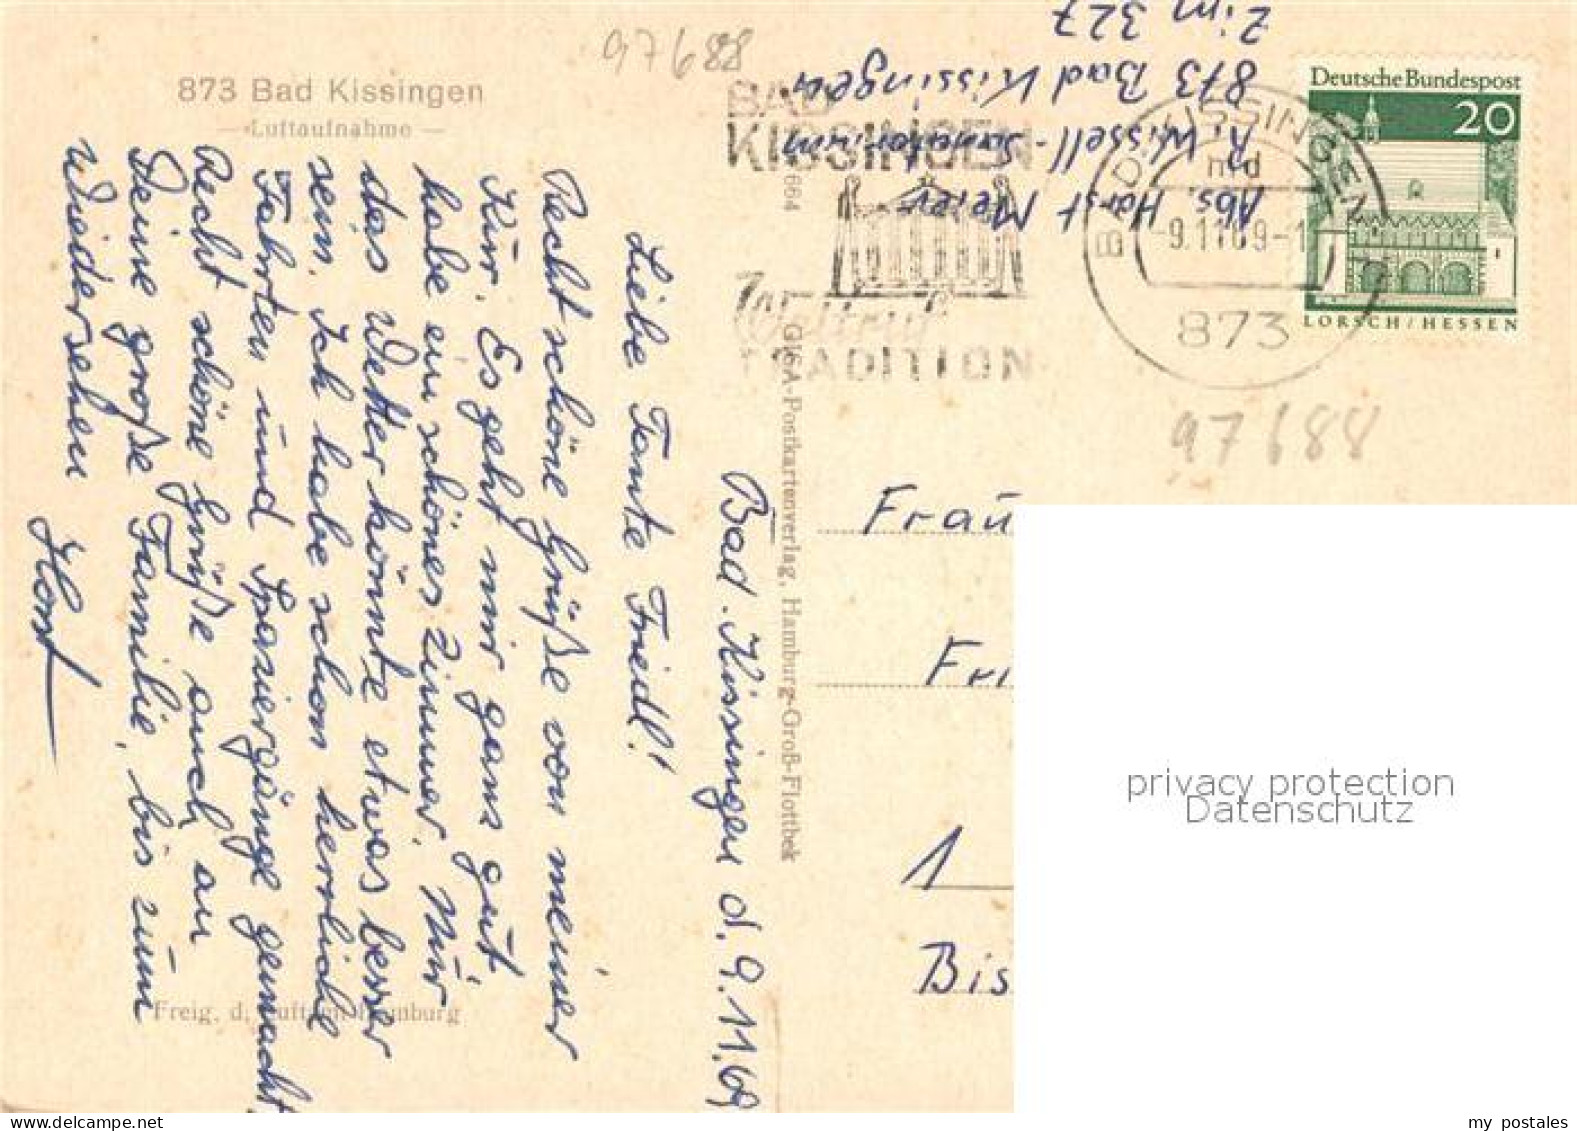 97688
873 Bad Kissingen
— Luftaufnahme —
Bad Kissingen d. 9.11.69
Liebe Tante Friedl!
Recht schöne Grüße von meiner
Kur. Es geht mir ganz gut,
habe ein schönes Zimmer. Nur
das Wetter könnte etwas besser
sein. Ich habe schon herrliche
Fahrten und Spaziergänge gemacht.
Recht schöne Grüße auch an
Deine große Familie, bis zum
Wiedersehen
Horst
Freig. d. Luftamt Hamburg
664
GISA-Postkartenverlag, Hamburg-Groß-Flottbek
Abs. Horst Meier
R. Wissell-Sanatorium
873 Bad Kissingen
Zim 327
BAD
KISSINGEN
Weltruf
TRADITION
BAD KISSINGEN
md
-9.11.69-1
873
Deutsche Bundespost
20
LORSCH/HESSEN
97688
Frau
Fri
1
Bis
privacy protection
Datenschutz
my postales